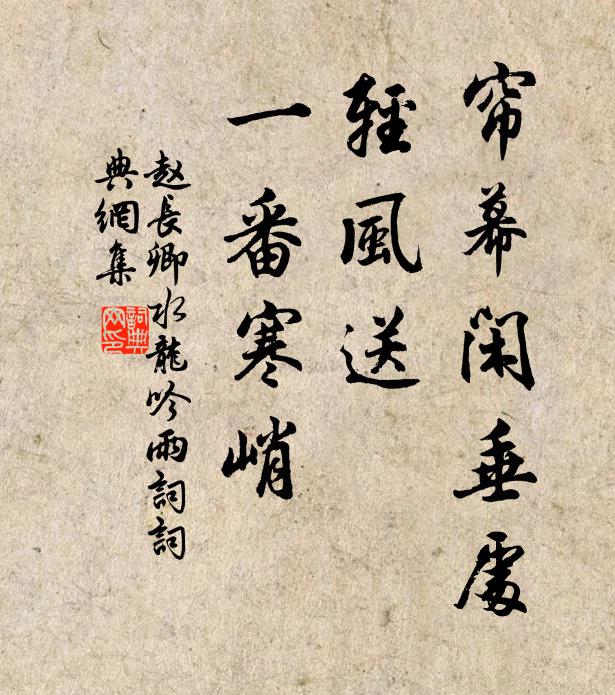 帘幕閑垂處
輕風送
一番寒峭
赵長卿水龍吟雨詞詞
典網集
詞典
网印